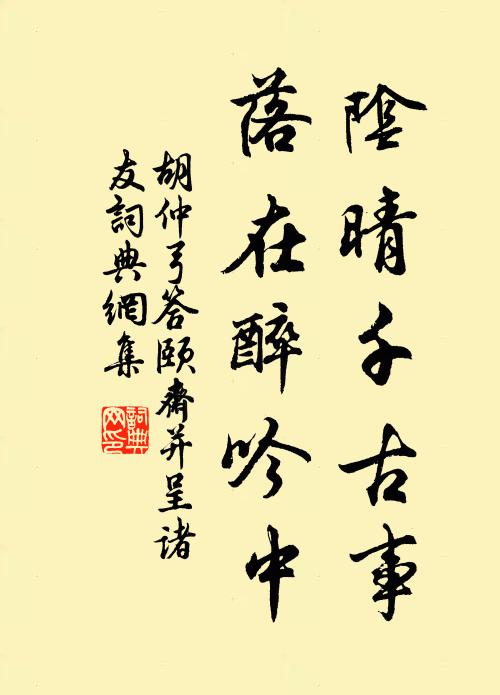 陰晴千古事
落在醉吟中
胡仲弓答頤齋并呈諸
友詞典網集
詞典
网印